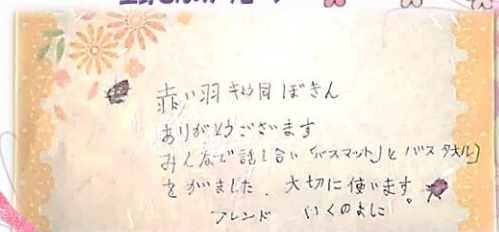 赤い羽 キョウ同 ぼきん
ありがとうございます
みんなで話し合い「バスマット」と「バスタオル」
をがました、大切に使います。
フレンド いくのよしこ